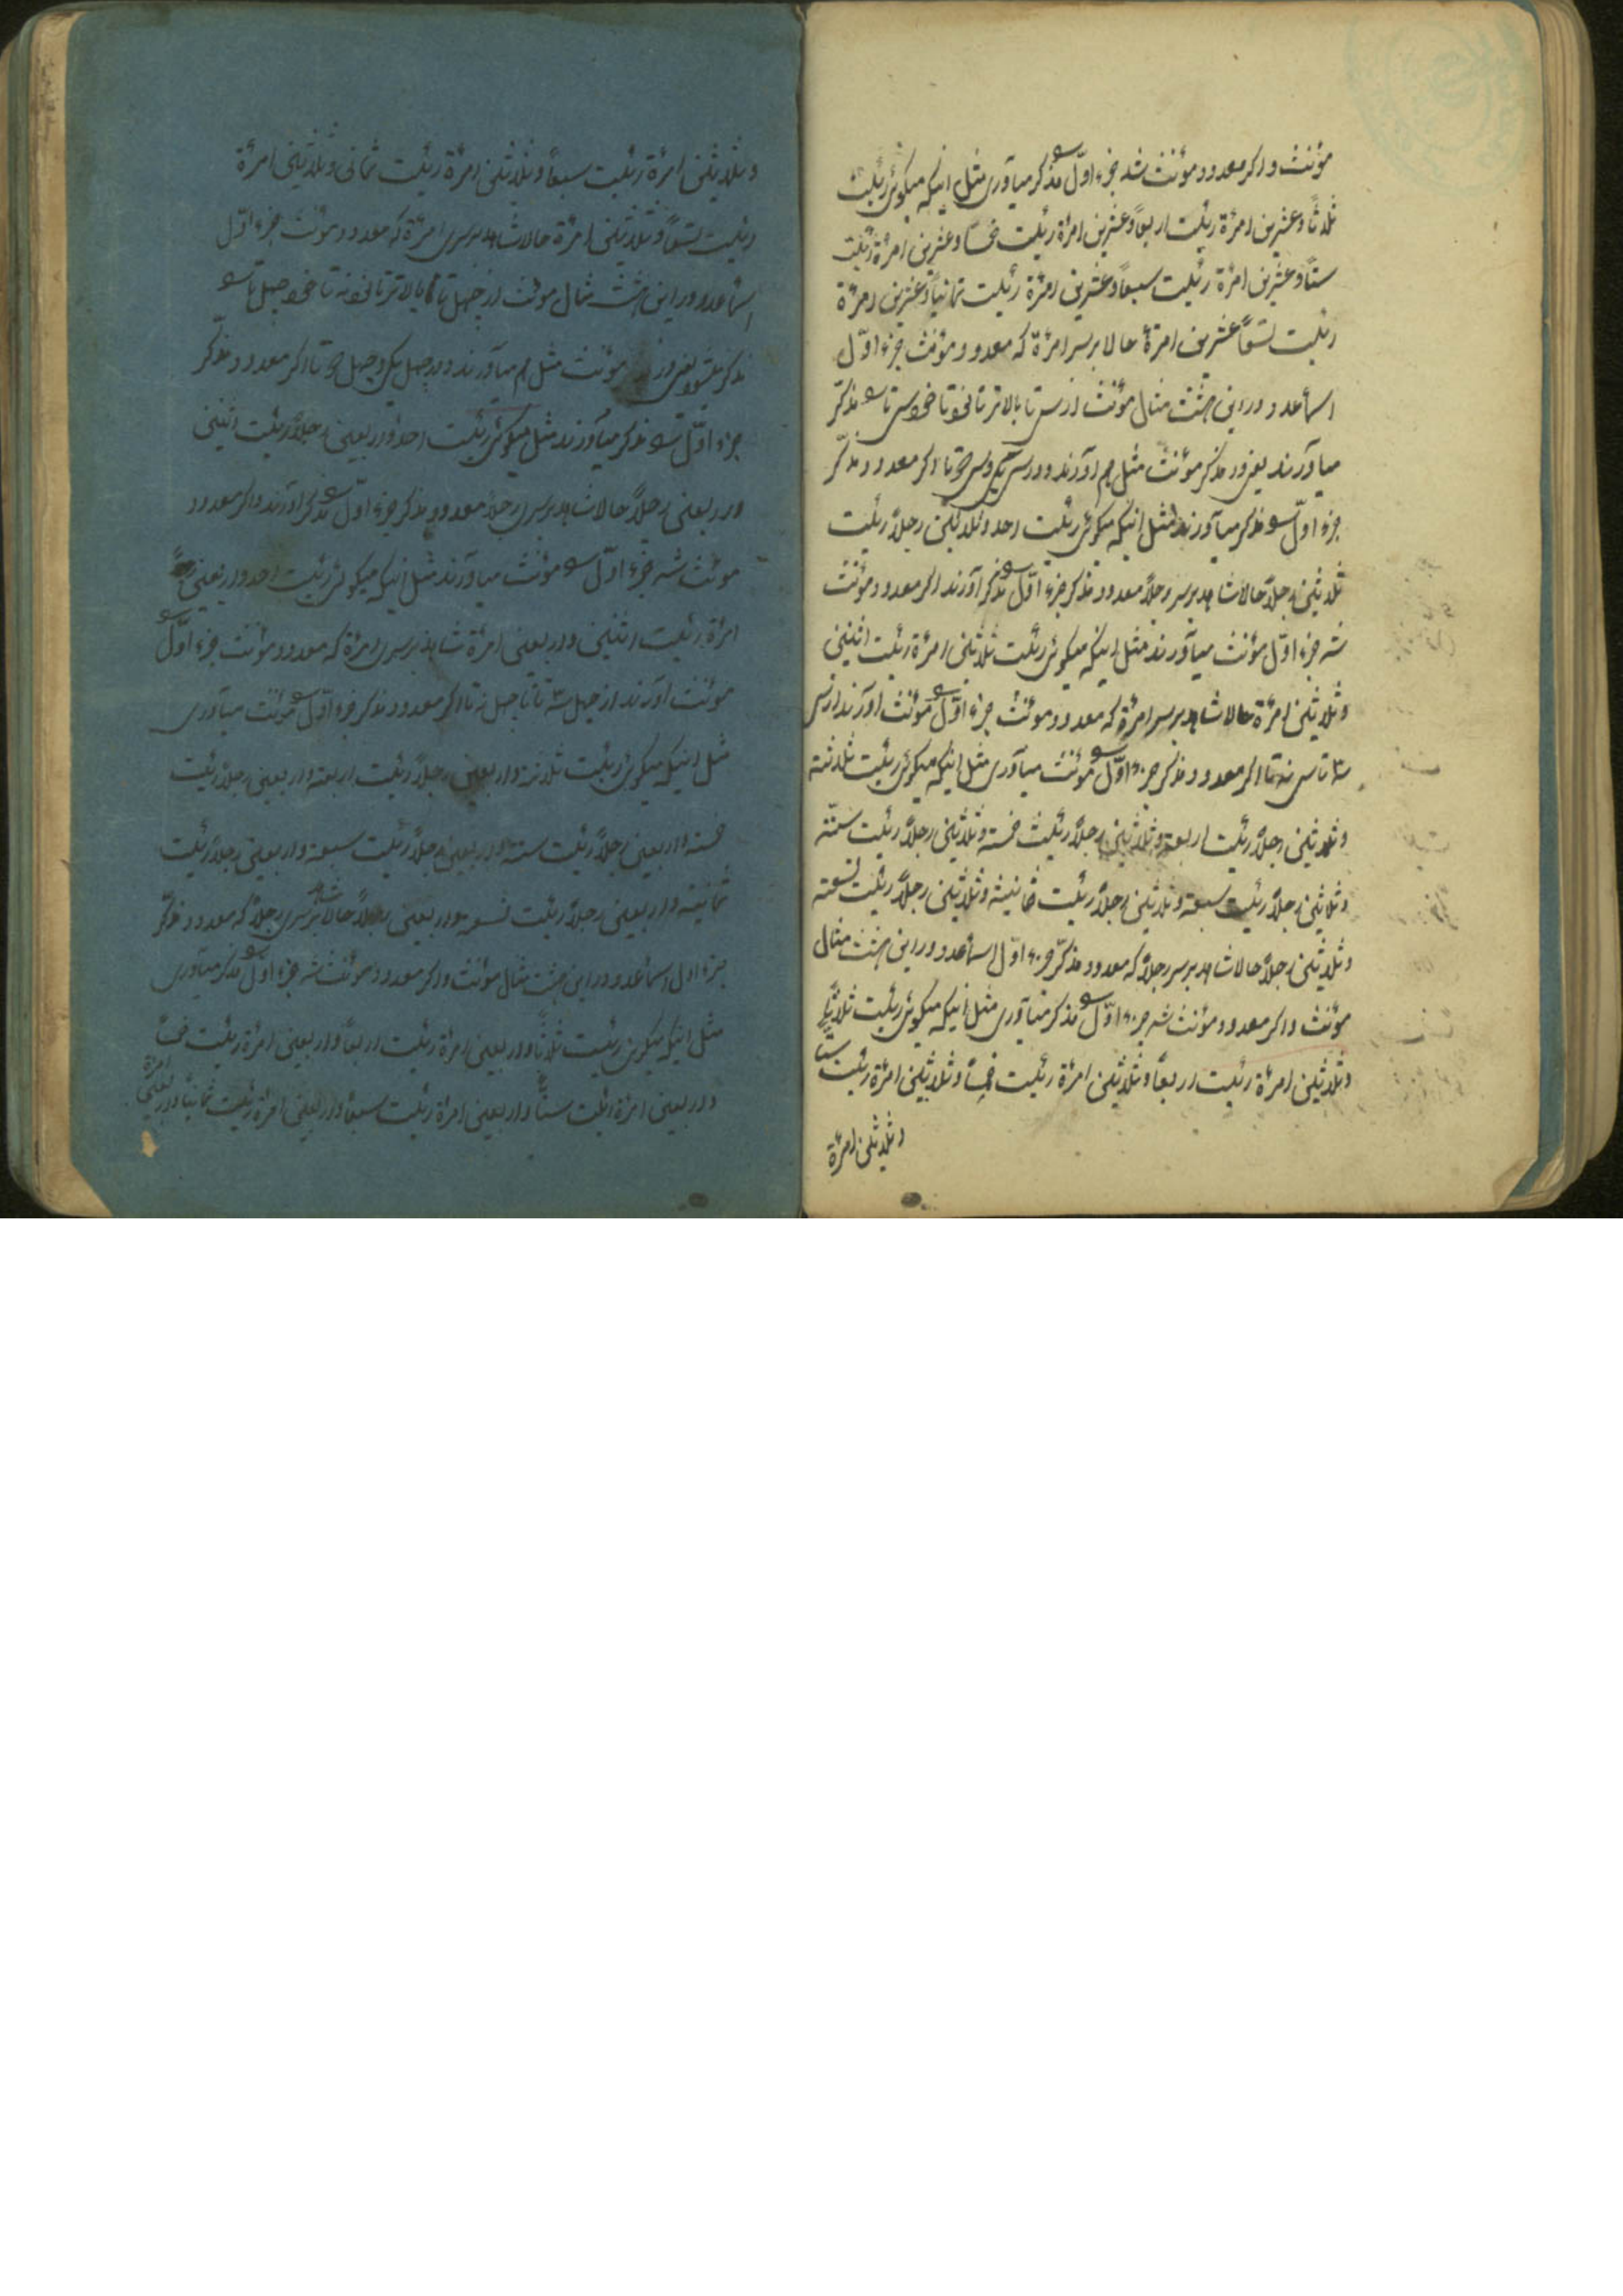 مؤنث و اکر معدود مؤنث شد جزء اوّل سو مذکر میآوری مثل اینکه میکوئی رئیت
ثلاثاً و عشرین امرئة رئیت اربعاً و عشرین امرئة رئیت خمساً و عشرین امرئة رئیت
ستاً و عشرین امرئة رئیت سبعاً و عشرین امرئة رئیت ثمانیاً و عشرین امرئة
رئیت تسعاً عشرین امرئة حالا بر سر امرئة که معدود مؤنث جزء اوّل
اسمأ عدد در این هشت مثال مؤنث از سی تا بالاتر تا سو مذکّر
میآورند یعنی در مذکر مؤنث مثل هم آورند و در سی یک و سی تا اکر معدود مذکّر
جزء اوّل سو مذکر میآورند مثل اینکه میکوئی رئیت احد و ثلاثین رجلاً رئیت
ثلاثین رجلاً حالا شاهد بر سر رجلاً معدود مذکر جزء اوّل سو مذکر آورند اکر معدود مؤنث
شد جزء اوّل مؤنث میآورند مثل اینکه میکوئی رئیت ثلاثین امرئة رئیت اثنین
و ثلاثین امرئة حالا شاهد بر سر امرئة که معدود مؤنث جزء اوّل سو مؤنث آورند از سی
سه تا سی نه تا اکر معدود مذکر جزء اوّل سو مؤنث میآوری مثل اینکه میکوئی رئیت ثلاثة
و ثلاثین رجلاً رئیت اربعة و ثلاثین رجلاً رئیت خمسة و ثلاثین رجلاً رئیت ستّة
و ثلاثین رجلاً رئیت سبعة و ثلاثین رجلاً رئیت ثمانیة و ثلاثین رجلاً رئیت تسعة
و ثلاثین رجلاً حالا شاهد بر سر رجلاً که معدود مذکّر جزء اوّل اسمأ عدد در این هشت مثال
مؤنث و اکر معدود مؤنث شد جزء اوّل سو مذکر میآوری مثل اینکه میکوئی رئیت ثلاثاً
و ثلاثین امرئة رئیت اربعاً و ثلاثین امرئة رئیت خمساً و ثلاثین امرئة رئیت ستاً
و ثلاثین امرئة
و ثلاثین امرئة رئیت سبعاً و ثلاثین امرئة رئیت ثمانی و ثلاثین امرئة
رئیت تسعاً و ثلاثین امرئة حالا شاهد بر سر امرئة که معدود مؤنث جزء اوّل
اسمأ عدد در این هشت مثال مؤنث از چهل تا بالاتر تا سو
مذکر یعنی در مؤنث مثل هم میآورند و در چهل یک و چهل تا اکر معدود مذکّر
جزء اوّل سو مذکر میآورند مثل میکوئی رئیت احد و اربعین رجلاً رئیت اثنین
و اربعین رجلاً حالا شاهد بر سر رجلاً معدود مذکر جزء اوّل سو مذکر آورند و اکر معدود
مؤنث شد جزء اوّل سو مؤنث میآورند مثل اینکه میکوئی رئیت احد و اربعین
امرئة رئیت اثنین و اربعین امرئة شاهد بر سر امرئة که معدود مؤنث جزء اوّل سو
مؤنث آورند از چهل سه تا تا چهل نه تا اکر معدود مذکر جزء اوّل سو مؤنث میآوری
مثل اینکه میکوئی رئیت ثلاثة و اربعین رجلاً رئیت اربعة و اربعین رجلاً رئیت
خمسة و اربعین رجلاً رئیت ستة و اربعین رجلاً رئیت سبعة و اربعین رجلاً رئیت
ثمانیة و اربعین رجلاً رئیت تسعة و اربعین رجلاً حالا شاهد بر سر رجلاً که معدود مذکّر
جزء اول اسمأ عدد در این هشت مثال مؤنث و اکر معدود مؤنث شد جزء اوّل سو مذکر میآوری
مثل اینکه میکوئی رئیت ثلاثاً و اربعین امرئة رئیت اربعاً و اربعین امرئة رئیت خمساً
و اربعین امرئة رئیت ستاً و اربعین امرئة رئیت سبعاً و اربعین امرئة رئیت ثمانیاً و اربعین امرئة